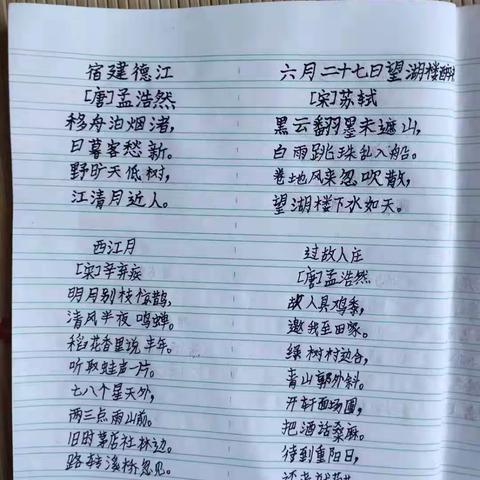 宿建德江
[唐]孟浩然
移舟泊烟渚,
日暮客愁新。
野旷天低树,
江清月近人。
六月二十七日望湖楼醉书
[宋]苏轼
黑云翻墨未遮山,
白雨跳珠乱入船。
卷地风来忽吹散,
望湖楼下水如天。
西江月
[宋]辛弃疾
明月别枝惊鹊,
清风半夜鸣蝉。
稻花香里说丰年。
听取蛙声一片。
七八个星天外,
两三点雨山前。
旧时茅店社林边。
路转溪桥忽见。
过故人庄
[唐]孟浩然
故人具鸡黍,
邀我至田家。
绿树村边合,
青山郭外斜。
开轩面场圃,
把酒话桑麻。
待到重阳日,